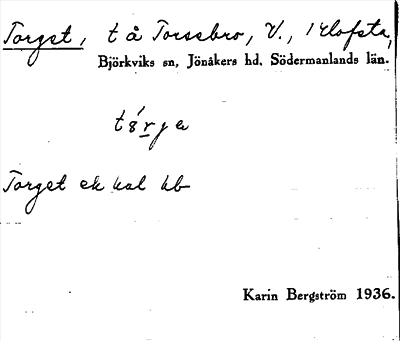 Torget, t å Torsebro, V., 1 Elofsta,
Björkviks sn, Jönåkers hd. Södermanlands län.
Torget ek kal hb
Karin Bergström 1936.